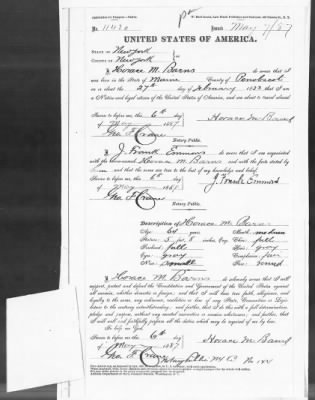 No. 11420
May 7/87
UNITED STATES OF AMERICA.
STATE OF New York
COUNTY OF New York
I, Horace M. Barns do swear that I
was born in the State of Maine County of Penobscot
on or about the 27th day of February 1823 that I am
a Native and loyal citizen of the United States of America, and am about to travel abroad.
Sworn to before me, this 6th day
of May 1887
Geo F. Crane
Notary Public.
Horace M. Barns
I, J. Frank Emmons do swear that I am acquainted
with the above-named Horace M. Barns and with the facts stated by
him and that the same are true to the best of my knowledge and belief.
Sworn to before me, this 6th day
of May 1887
Geo F. Crane
Notary Public.
J. Frank Emmons
Description of Horace M. Barns
Age: 64 years
Mouth: medium
Stature: 5 feet, 8 inches, Eng.
Chin: full
Forehead: full
Hair: gray
Eyes: gray
Complexion: fair
Nose: small
Face: round
I, Horace M. Barns do solemnly swear that I will
support, protect and defend the Constitution and Government of the United States against
all enemies, whether domestic or foreign, and that I will bear true faith, allegiance, and
loyalty to the same, any ordinance, resolution or law of any State, Convention or Legislature
to the contrary notwithstanding; and further, that I do this with a full determination,
pledge and purpose, without any mental reservation or evasion whatsoever; and further, that
I will well and faithfully perform all the duties which may be required of me by law.
So help me God.
Sworn to before me, this 6th day
of May 1887
Geo F. Crane
Horace M. Barns
No 144